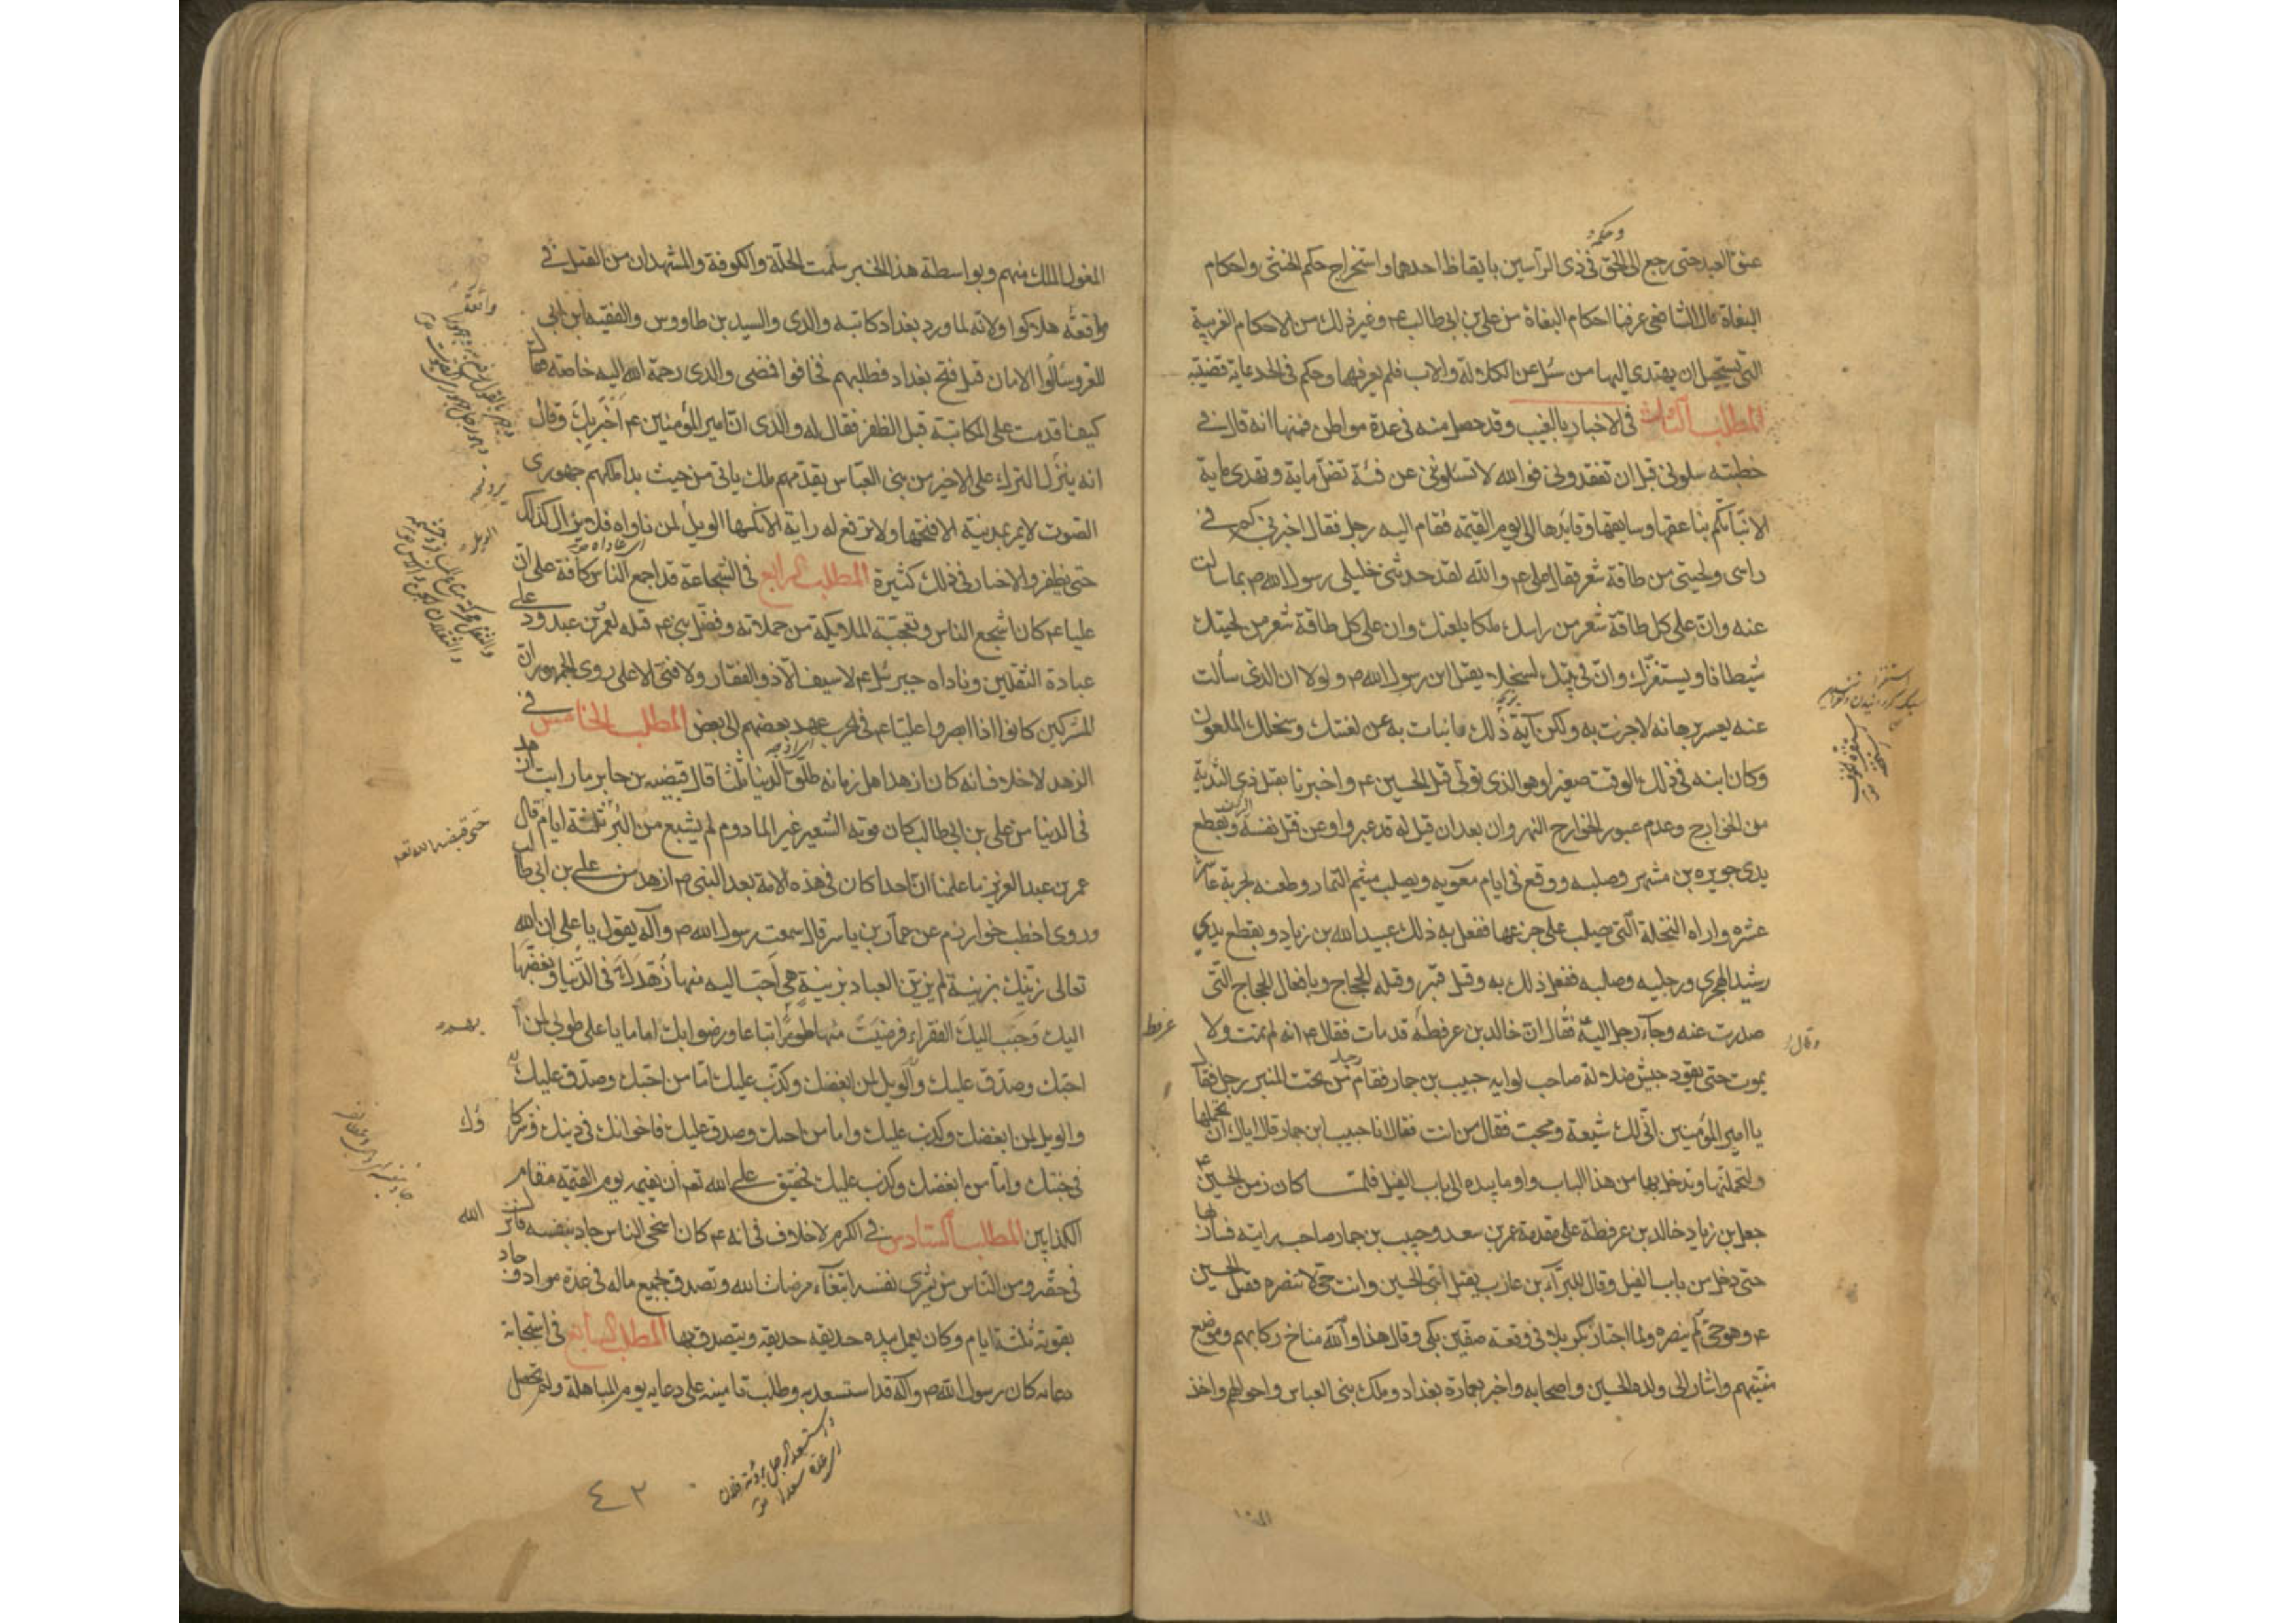 وحكمه
عنق العبد حتى رجع الى الحق في ذى الرأسين بايقاظ احدهما واستخراج حكم الخنثى واحكام
البغاة قال الشافعى عرفنا احكام البغاة من على بن ابى طالب ع م وغير ذلك من الاحكام الغريبة
التى يستحيل ان يهتدى اليها من سئل عن الكلالة والاب فلم يعرفهما وحكم فى الجد بماية قضية
المطلب الثالث فى الاخبار بالغيب وقد حصل منه فى عدة مواطن فمنها انه قال فى
خطبته سلونى قبل ان تفقدونى فوالله لا تسئلونى عن فئة تضل ماية وتهدى ماية
الا نبأتكم بناعقها وسايقها وقايدها الى يوم القيمة فقام اليه رجل فقال اخبرنى كم فى
راسى ولحيتى من طاقة شعر فقال على ع م والله لقد حدثنى خليلى رسول الله ص بما سالت
عنه وان على كل طاقة شعر من راسك ملكا يلعنك وان على كل طاقة شعر من لحيتك
شيطانا ويستفزك وان فى بيتك لسخلا يقتل ابن رسول الله ص ولولا ان الذى سالت
عنه يعسر برهانه لاخبرت به ولكن آية ذلك ما نبات به عن لعنتك وسخلك الملعون
وكان ابنه فى ذلك الوقت صغيرا وهو الذى تولى قتل الحسين ع م واخبرنا بقتل ذى الثدية
من الخوارج وعدم عبور الخوارج النهروان بعد ان قيل له قد عبروا وعن قتل نفسه وبقطع
يدى جويره بن مشهر وصلبه ووقع فى ايام معويه وبصلب ميثم التمار وطعنه بحربة عاشر
عشره واراه النخلة التى صلب على جزعها ففعل به ذلك عبيد الله بن زياد وبقطع يدي
رشيد الهجري ورجليه وصلبه ففعل ذلك به وقتل قنبر وقتله الحجاج وبافعال الحجاج التى
صدرت عنه وجآء رجل اليه فقال ان خالد بن عرفطة قد مات فقال ع م انه لم يمت ولا
يموت حتى يقود جيش ضلالة صاحب لوايه حبيب بن جمار فقام رجل من تحت المنبر فقال
يا امير المؤمنين انى لك شيعة ومحب فقال من انت فقال انا حبيب ابن جمار قال اياك ان تحملها
ولتحملنها وتدخل بها من هذا الباب واومابيده الى باب الفيل فلما كان زمن الحسين ع م
جعل ابن زياد خالد بن عرفطة على مقدمة عمر بن سعد وحبيب بن جمار صاحب رايته فسار بها
حتى دخل من باب الفيل وقال للبراء بن عازب يقتل ابنى الحسين وانت حى لا تنصره فقتل الحسين
ع م وهو حى لم ينصره ولما اجتاز بكربلا فى وقعة صفين بكى وقال هذا والله مناخ ركابهم وموضع
منيتهم واشار الى ولده الحسين واصحابه واخبر بعمارة بغداد وملك بنى العباس واحوالهم واخذ
عرفط
وقال
المغول الملك منهم وبواسطة هذا الخبر سلمت الحلة والكوفة والمشهدان من القتل فى
واقعة هلاكوا ولانه لما ورد بغداد كاتبه والدى والسيد بن طاووس والفقيه ابن ابى
العز وسئالوا الامان قبل فتح بغداد فطلبهم فخافوا فمضى والدى رحمة الله اليه خاصة فقال
كيف اقدمت على المكاتبة قبل الظفر فقال له والدى ان امير المؤمنين ع م اخبر بك وقال
انه ينزل الترك على الاخير من بنى العباس يقدمهم ملك ياتى من حيث بدا ملكهم جهورى
الصوت لا يمر بمدينة الا فتحها ولا ترفع له راية الا نكسها الويل لمن ناواه فلا يزال كذلك
حتى يظفر والاخبار فى ذلك كثيرة المطلب الرابع فى الشجاعة قد اجمع الناس كافة على ان
عليا ع م كان اشجع الناس وتعجبت الملايكة من حملاته وفضل نبى ع م قتله لعمرو بن عبدود على
عبادة الثقلين وناداه جبرئيل ع م لا سيف الا ذو الفقار ولا فتى الا على روى الجمهور ان
المشركين كانوا اذا ابصروا عليا ع م فى الحرب عهد بعضهم الى بعض المطلب الخامس فى
الزهد لا خلاف انه كان ازهد اهل زمانه طلق الدنيا ثلثا قال قبيضه بن جابر ما رايت ازهد
فى الدنيا من على بن ابى طالب كان قوته الشعير غير المادوم لم يشبع من البر ثلثة ايام قال
عمر بن عبد العزيز ما علمنا ان احدا كان فى هذه الامة بعد النبى ص ازهد من على بن ابى طالب
وروى اخطب خوارزم عن عمار بن ياسر قال سمعت رسول الله ص وآله يقول يا على ان الله
تعالى زينك بزينة لم يزين العباد بزينة هى احب اليه منها زهدك فى الدنيا وبغضها
اليك وحبب اليك الفقراء فرضيت منها اتباعا ورضوا بك اماما يا على طوبى لمن
احبك وصدق عليك والويل لمن ابغضك وكذب عليك اما من احبك وصدق عليك
والويل لمن ابغضك وكذب عليك واما من احبك وصدق عليك فاخوانك فى دينك وشركا
فى جنتك واما من ابغضك وكذب عليك فحقيق على الله تعم ان يقيمه يوم القيمة مقام
الكذابين المطلب السادس فى الكرم لا خلاف فى انه ع م كان اسخى الناس جاد بنفسه فانزل الله
فى حقه ومن الناس من يشرى نفسه ابتغآء مرضات الله وتصدق بجميع ماله فى عدة موارد وجاد
بقوته ثلثة ايام وكان يعمل بيده حديقه حديقه ويتصدق بها المطلب السابع فى استجابة
دعائه كان رسول الله ص وآله قد استسعد به وطلب تامينه على دعائه يوم المباهلة ولم تحصل
حتى قبضه الله تعم
الله
٤٢